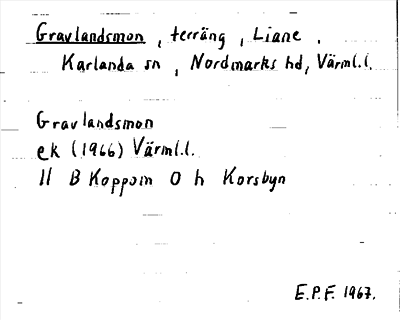 Gravlandsmon, terräng, Liane.
Karlanda sn, Nordmarks hd, Värml.l.
Gravlandsmon
ek (1966) Värml.l.
11 B Koppom O h Korsbyn
E.P.F. 1967.